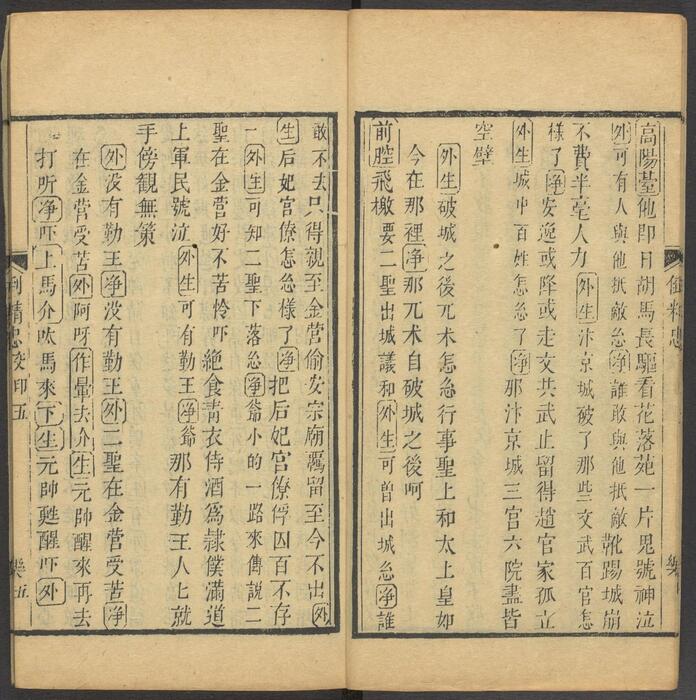 高陽臺他即日胡馬長驅看花落苑一片鬼號神泣
外可有人與他抵敵怎淨誰敢與他抵敵靴踢城崩
不費半毫人力外生汴京城破了那些文武百官怎
樣了淨安逸或降或走文共武止留得趙官家孤立
外生城中百姓怎么了淨那汴京城三宮六院盡皆
空壁
外生破城之後兀术怎怎行事聖上和太上皇如
今在那裡淨那兀术自破城之後呵
前腔飛檄要二聖出城議和外生可曾出城怎淨誰
敢不去只得親至金营偷安宗廟羈留至今不出外
生后妃官僚怎怎樣了淨把后妃宮僚俘囚百不存
一外生可知二聖下落怎淨爺小的一路來傳説二
聖在金营好不苦怜吓絕食青衣侍酒為隷僕滿道
上軍民號泣外生可有勤王淨爺那有勤王人上就
手傍観無策
外没有勤王淨没有勤王外二聖在金营受苦淨
在金营受苦外阿呀作暈去介生元帥醒來再去
打听淨吓上馬介吠馬來下生元帥甦醒吓外
精忠
五